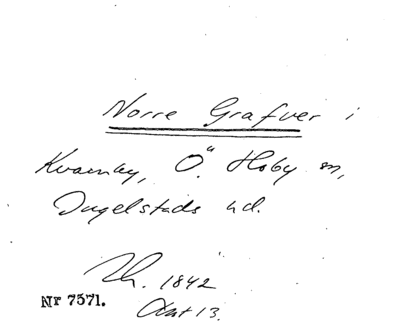 Norre Grafver i
Kvarnby, Ö. Hoby sn,
Ingelstads hd.
1842
Nr 7571.
13.